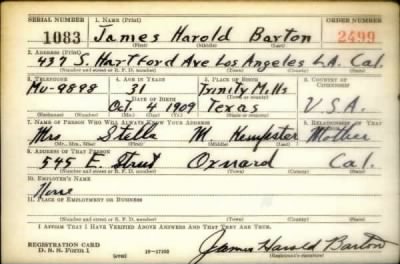 SERIAL NUMBER 1. NAME (Print) ORDER NUMBER
1083 James Harold Barton 2499
(First) (Middle) (Last)
2. ADDRESS (Print)
437 S. Hartford Ave Los Angeles L.A. Cal.
(Number and street or R. F. D. number) (Town) (County) (State)
3. TELEPHONE 4. AGE IN YEARS 5. PLACE OF BIRTH 6. COUNTRY OF CITIZENSHIP
Mu-9898 31 Trinity Mills
DATE OF BIRTH (Town or county)
Oct. 4 1909 Texas U.S.A.
(Exchange) (Number) (Mo.) (Day) (Yr.) (State or country)
7. NAME OF PERSON WHO WILL ALWAYS KNOW YOUR ADDRESS 8. RELATIONSHIP OF THAT PERSON
Mrs Stella M. Mother
(Mr., Mrs., Miss) (First) (Middle) (Last)
9. ADDRESS OF THAT PERSON
545 E. Street Oxnard Cal.
(Number and street or R. F. D. number) (Town) (County) (State)
10. EMPLOYER'S NAME
None
11. PLACE OF EMPLOYMENT OR BUSINESS
(Number and street or R. F. D. number) (Town) (County) (State)
I AFFIRM THAT I HAVE VERIFIED ABOVE ANSWERS AND THAT THEY ARE TRUE.
REGISTRATION CARD
D. S. S. Form 1 (over) 16-17105 James Harold Barton